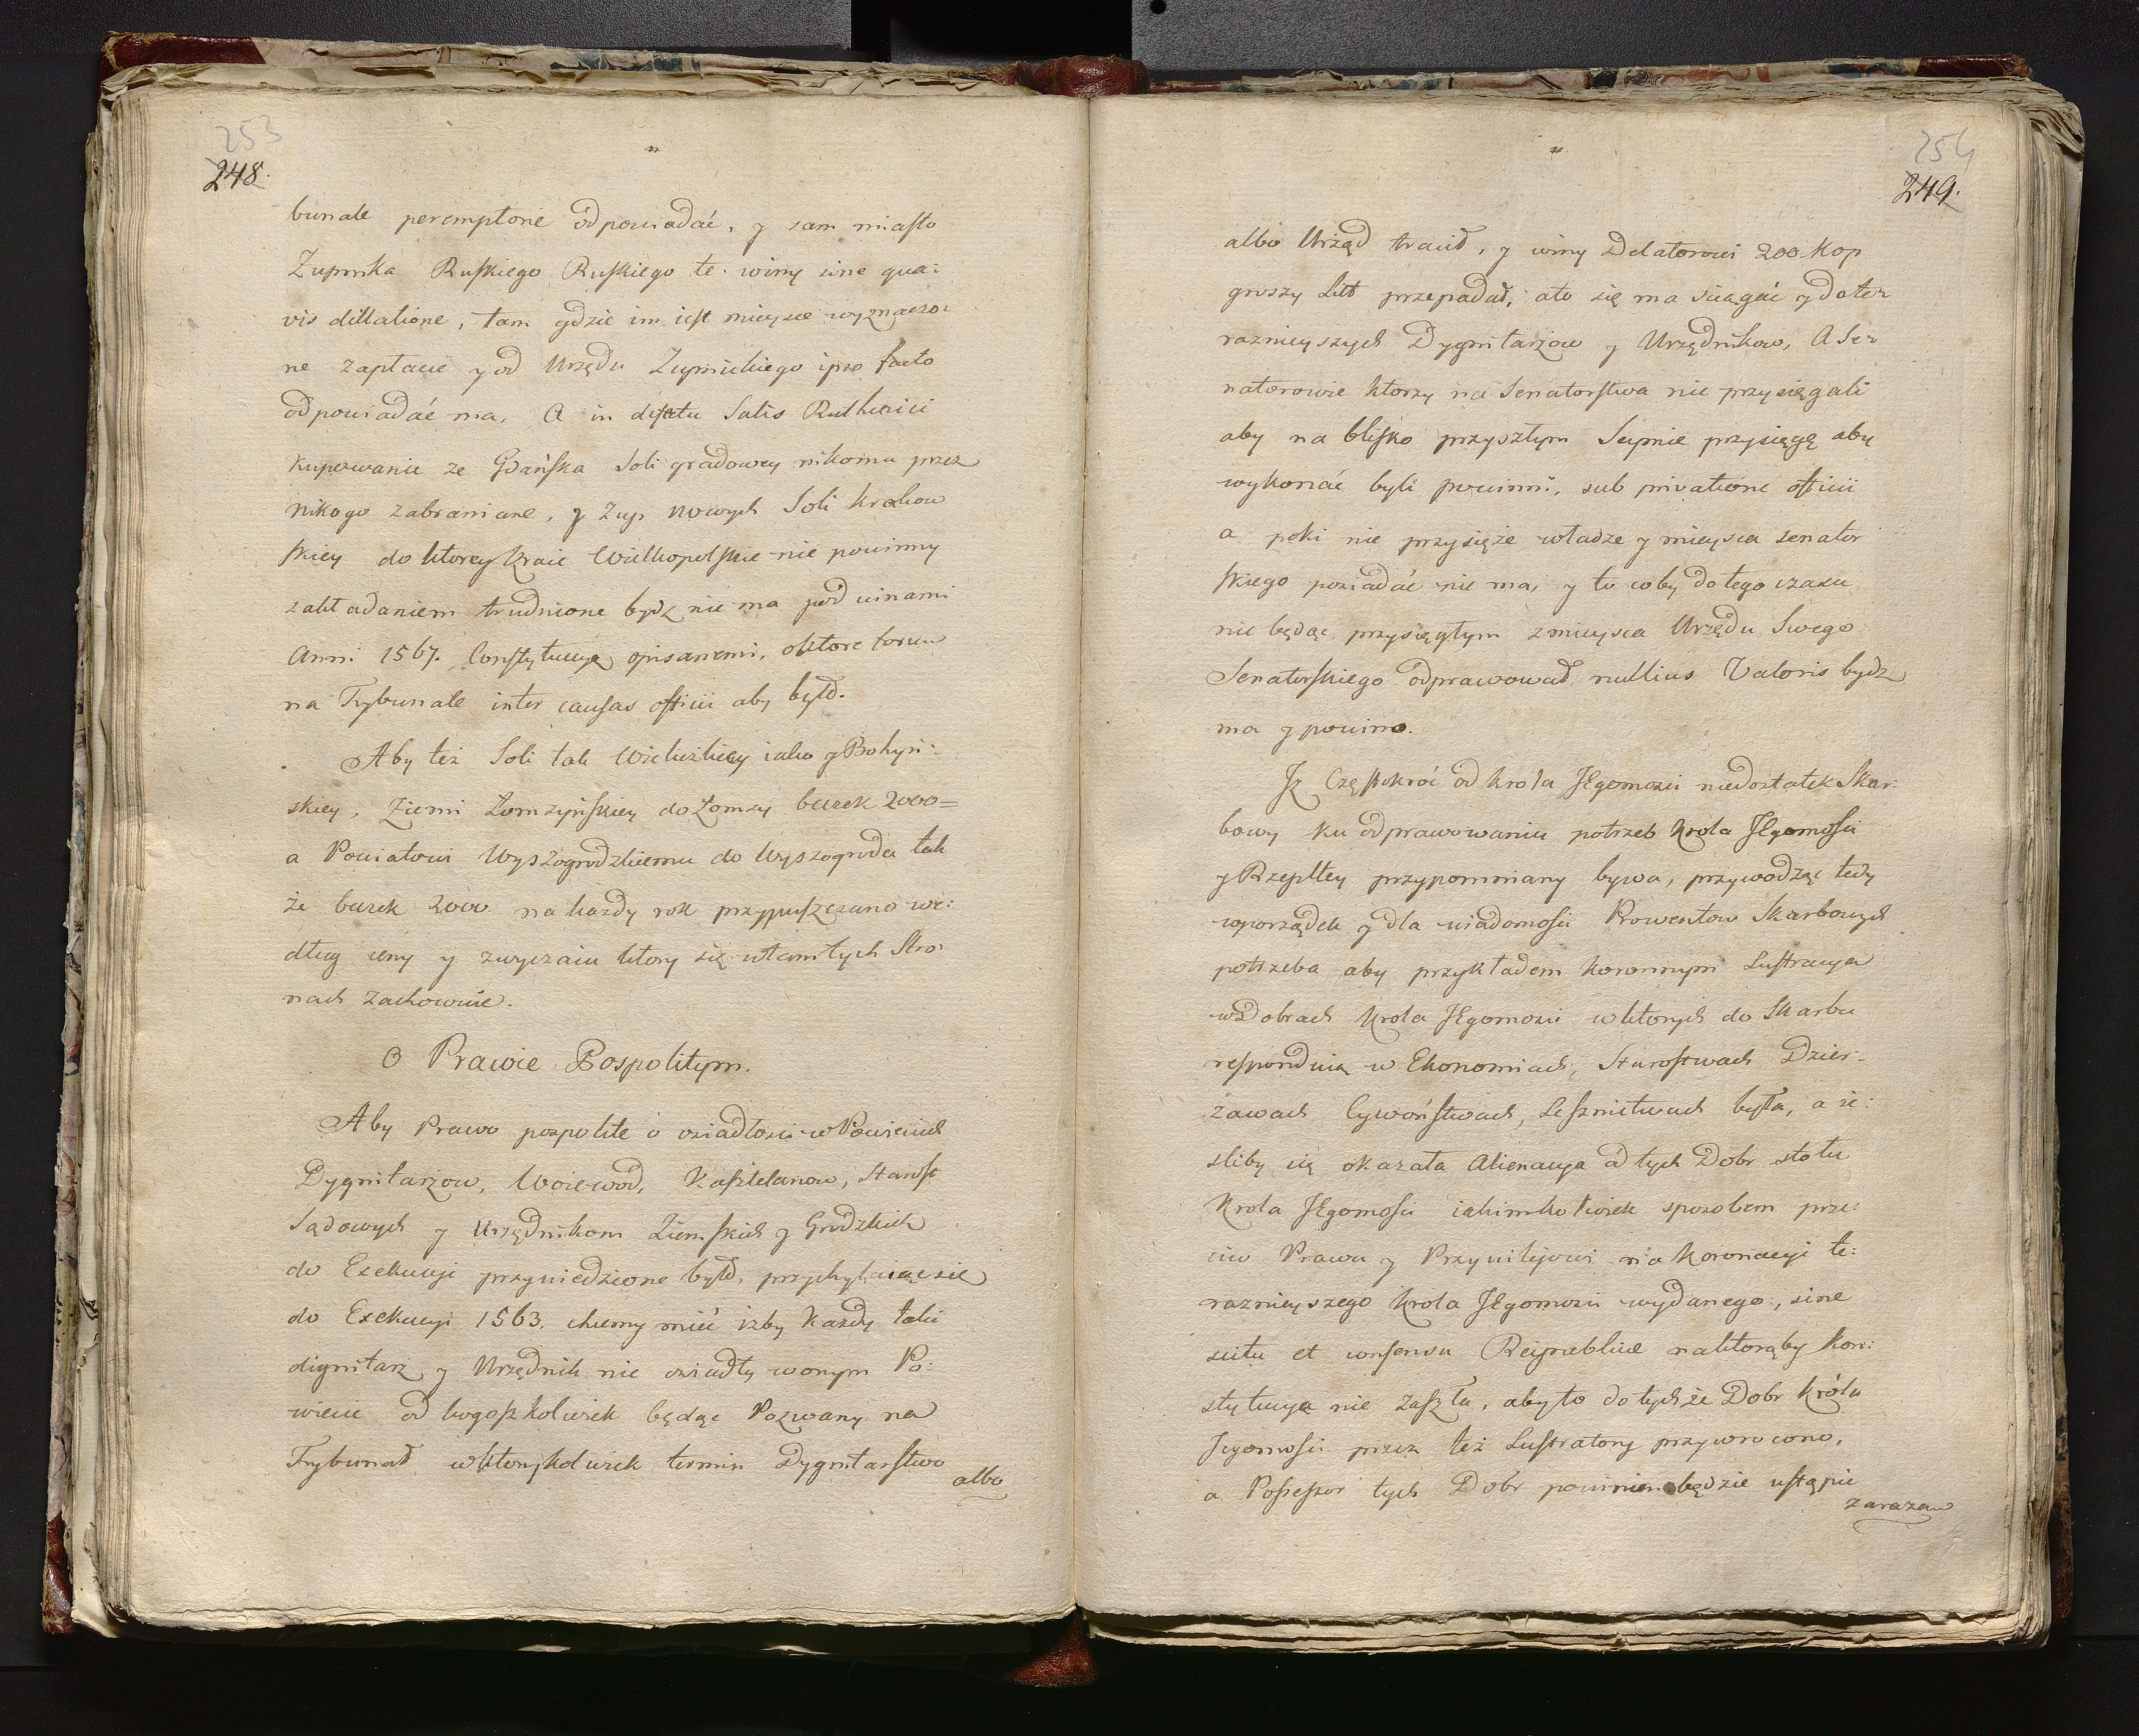 253
248.
bunale peremptorie odpowiadać, y sam miasto
Zupnika Ruskiego Ruskiego te winy sine qua:
vis dillatione, tam gdzie im iest mieysce wyznaczo:
ne zapłacić y od Urzędu Zupnickiego ipso facto
odpowiadać ma, A in defectu Salis Ruthenici
kupowanie ze Gdańska Soli gradowey nikomu przez
nikogo zabraniane, y Zup nowych Soli Krakow
skiey do ktorey kraie Wielkopolskie nie powinny
zakładaniem trudnione bydz nie ma pod winami
Anni 1567. Constytucyą opisanemi, oktore forum
na Trybunale inter causas officii aby było.
Aby też Soli tak Wielickiey iako y Bohyń:
skiey, Ziemi Łomzyńskiey do Łomzy beczek 2000=
a Powiatowi Wyszogrodzkiemu do Wyszogroda tak
że beczek 2000 na każdy rok przypuszczano we:
dług ceny y zwyczaiu ktory się wtamtych Stro:
nach zachowuie.
O Prawie Pospolitym.
Aby Prawo pospolite o osiadłości w Powieciech
Dygnitarzow, Woiewod, Kasztelanow, Starost
Sądowych y Urzędnikom Ziemskich y Grodzkich
do Exekucyi przywiedzione było, przychylaiąc się
do Exekucyi 1563. chcemy mieć izby każdy taki
dignitarz y Urzędnik nie osiadły wonym Po:
wiecie od kogoszkolwiek będąc Pozwany na
Trybunał wktorykolwiek termin Dygnitarstwo
albo
254
249.
albo Urząd tracił, y winy Delatorowi 200. kop
groszy Litt przepadał, ato się ma sciągać y do te:
raznieyszych Dygnitarzow y Urzędnikow, A Se:
natorowie ktorzy na Senatorstwa nie przysięgali
aby na blisko przyszłym Seymie przysięgę aby
wykonać byli powinni, sub privatione officii
a poki nie przysięże władze y mieysca senator
skiego posiadać nie ma, y to coby do tego czasu
nie będąc przysięgłym z mieysca Urzędu Swego
Senatorskiego odprawował nullius Valoris bydz
ma y powinno.
Jż Częstokroć od Krola JEgomości niedostatek Skar:
bowy ku odprawowaniu potrzeb Krola JEgomości
y Rzepltey przypominany bywa, przywodząc tedy
wporządek y dla wiadomości Prowentow Skarbowych
potrzeba aby przykładem koronnym Lustracya
wDobrach Krola JEgomości wktorych do Skarbu
responduią w Ekonomiach, Starostwach Dzier:
żawach Cywoństwach, Lesznictwach była, a ie:
sliby się okazała Alienacya od tych Dobr stołu
Krola JEgomości iakimkolwiek sposobem prze:
ciw Prawu y Przywilejowi na Koronacyi te:
raznieyszego Krola JEgomości wydanego, sine
scitu et consensu Reipublice naktorąby Kon:
stytucya nie zaszła, aby to do tychże Dobr Króla
Jegomości przez też Lustratory przywrocono,
a Possessor tych Dobr powinien będzie ustąpić
zarazem